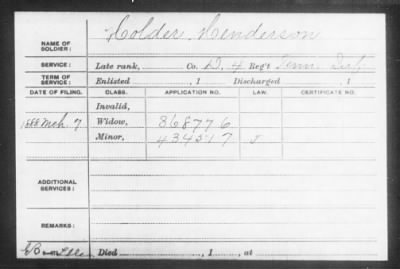 NAME OF SOLDIER: Holder, Henderson
SERVICE: Late rank, Co. D, 4 Reg't Tenn. Inf.
TERM OF SERVICE: Enlisted , 1 Discharged , 1
DATE OF FILING. CLASS. APPLICATION NO. LAW. CERTIFICATE NO.
Invalid,
1888 Mch. 7 Widow, 368776
Minor, 434517 J
ADDITIONAL SERVICES:
REMARKS:
Died , 1 , at